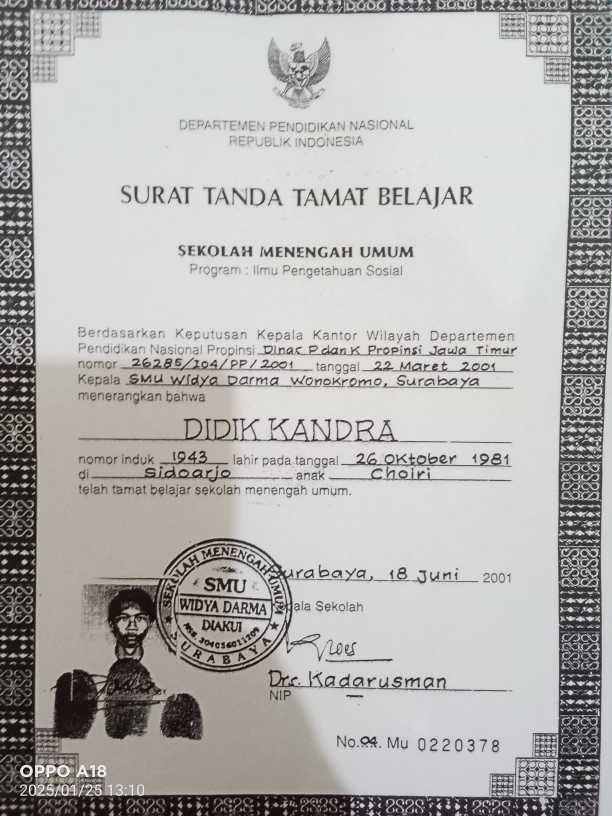 DEPARTEMEN PENDIDIKAN NASIONAL
REPUBLIK INDONESIA
SURAT TANDA TAMAT BELAJAR
SEKOLAH MENENGAH UMUM
Program : Ilmu Pengetahuan Sosial
Berdasarkan Keputusan Kepala Kantor Wilayah Departemen
Pendidikan Nasional Propinsi Dinas P dan K Propinsi Jawa Timur
nomor 26285/104/PP/2001 tanggal 22 Maret 2001
Kepala SMU Widya Darma Wonokromo, Surabaya
menerangkan bahwa
DIDIK KANDRA
nomor induk 1943 lahir pada tanggal 26 Oktober 1981
di Sidoarjo anak Choiri
telah tamat belajar sekolah menengah umum.
Surabaya, 18 Juni 2001
Kepala Sekolah
SEKOLAH MENENGAH UMUM
SMU
WIDYA DARMA
DIAKUI
SURABAYA
Drs. Kadarusman
NIP
No. 04. Mu 0220378
OPPO A18
2025/01/25 13:10